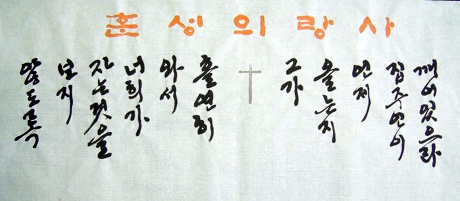 사랑의성혼
깨어있으라
집주인이
언제
올는지
그가
홀연히
와서
너희가
자는것을
보지
않도록